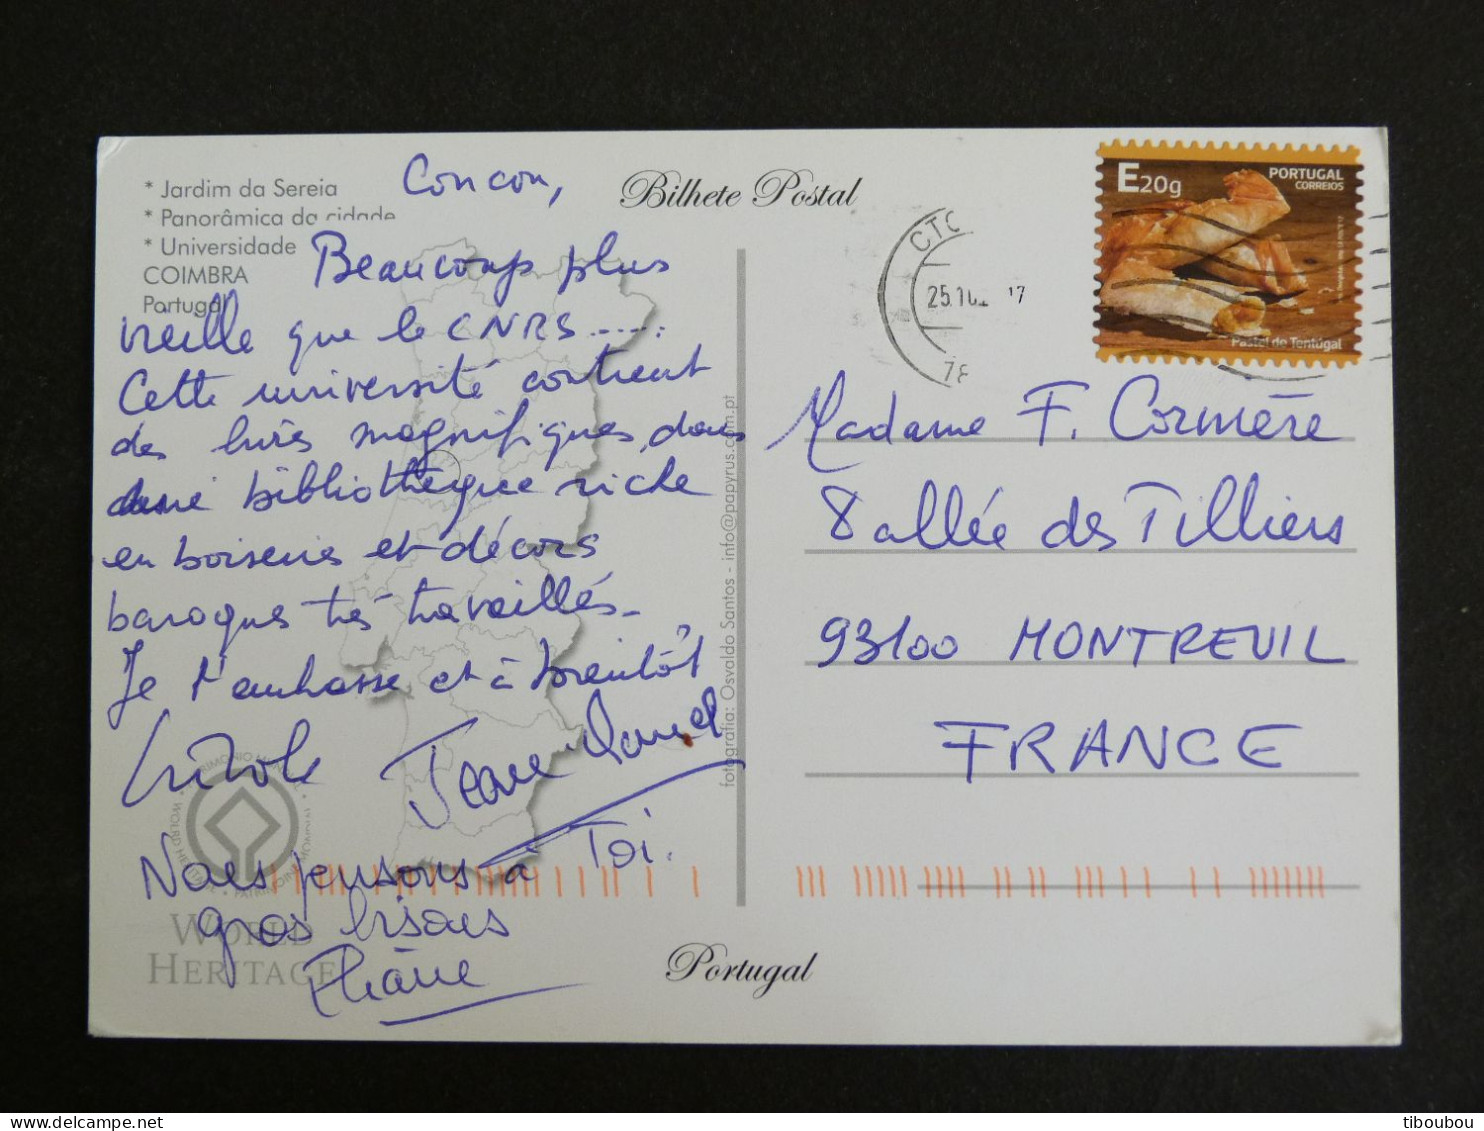 * Jardim da Sereia
* Panorâmica da cidade
* Universidade
COIMBRA
Portugal
Bilhete Postal
Coucou,
Beaucoup plus
vieille que le CNRS.....
Cette université contient
des livres magnifiques, dans
une bibliothèque riche
en boiseries et décors
baroques très travaillés.
Je t'embrasse et à bientôt
Nicole Jean Daniel
Nous pensons à Toi.
gros bisous
Eliane
WORLD
HERITAGE
fotografia: Osvaldo Santos - info@papyrus.com.pt
Portugal
E20g
PORTUGAL
CORREIOS
Pastel de Tentúgal
CTC
25.10
17
78
Madame F. Cormière
8 allée des Tilliers
93100 MONTREUIL
FRANCE
tiboubou